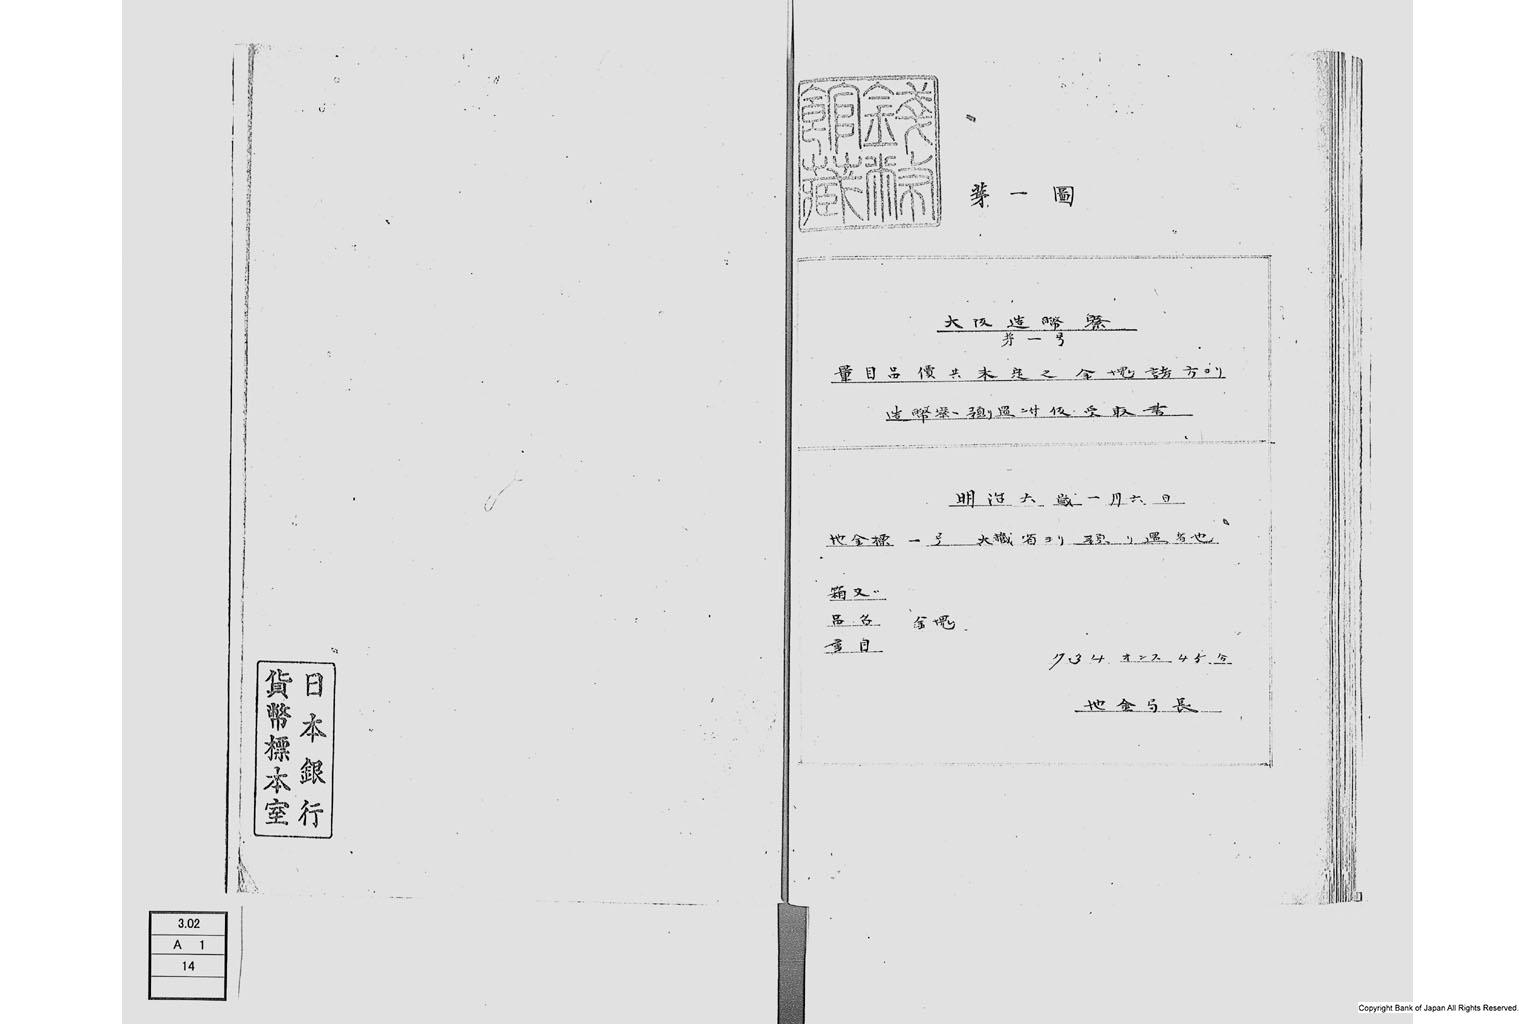 銭幣
館蔵
第一圖
大阪造幣寮
第一号
量目品價共未定之金塊諸方ヨリ
造幣寮
受取書
明治六歳一月六日
地金標一号
箱又ハ
品名 金塊
量目
734オンス45分
地金局長
日本銀行
貨幣標本室
3.02
A 1
14
Copyright Bank of Japan All Rights Reserved.